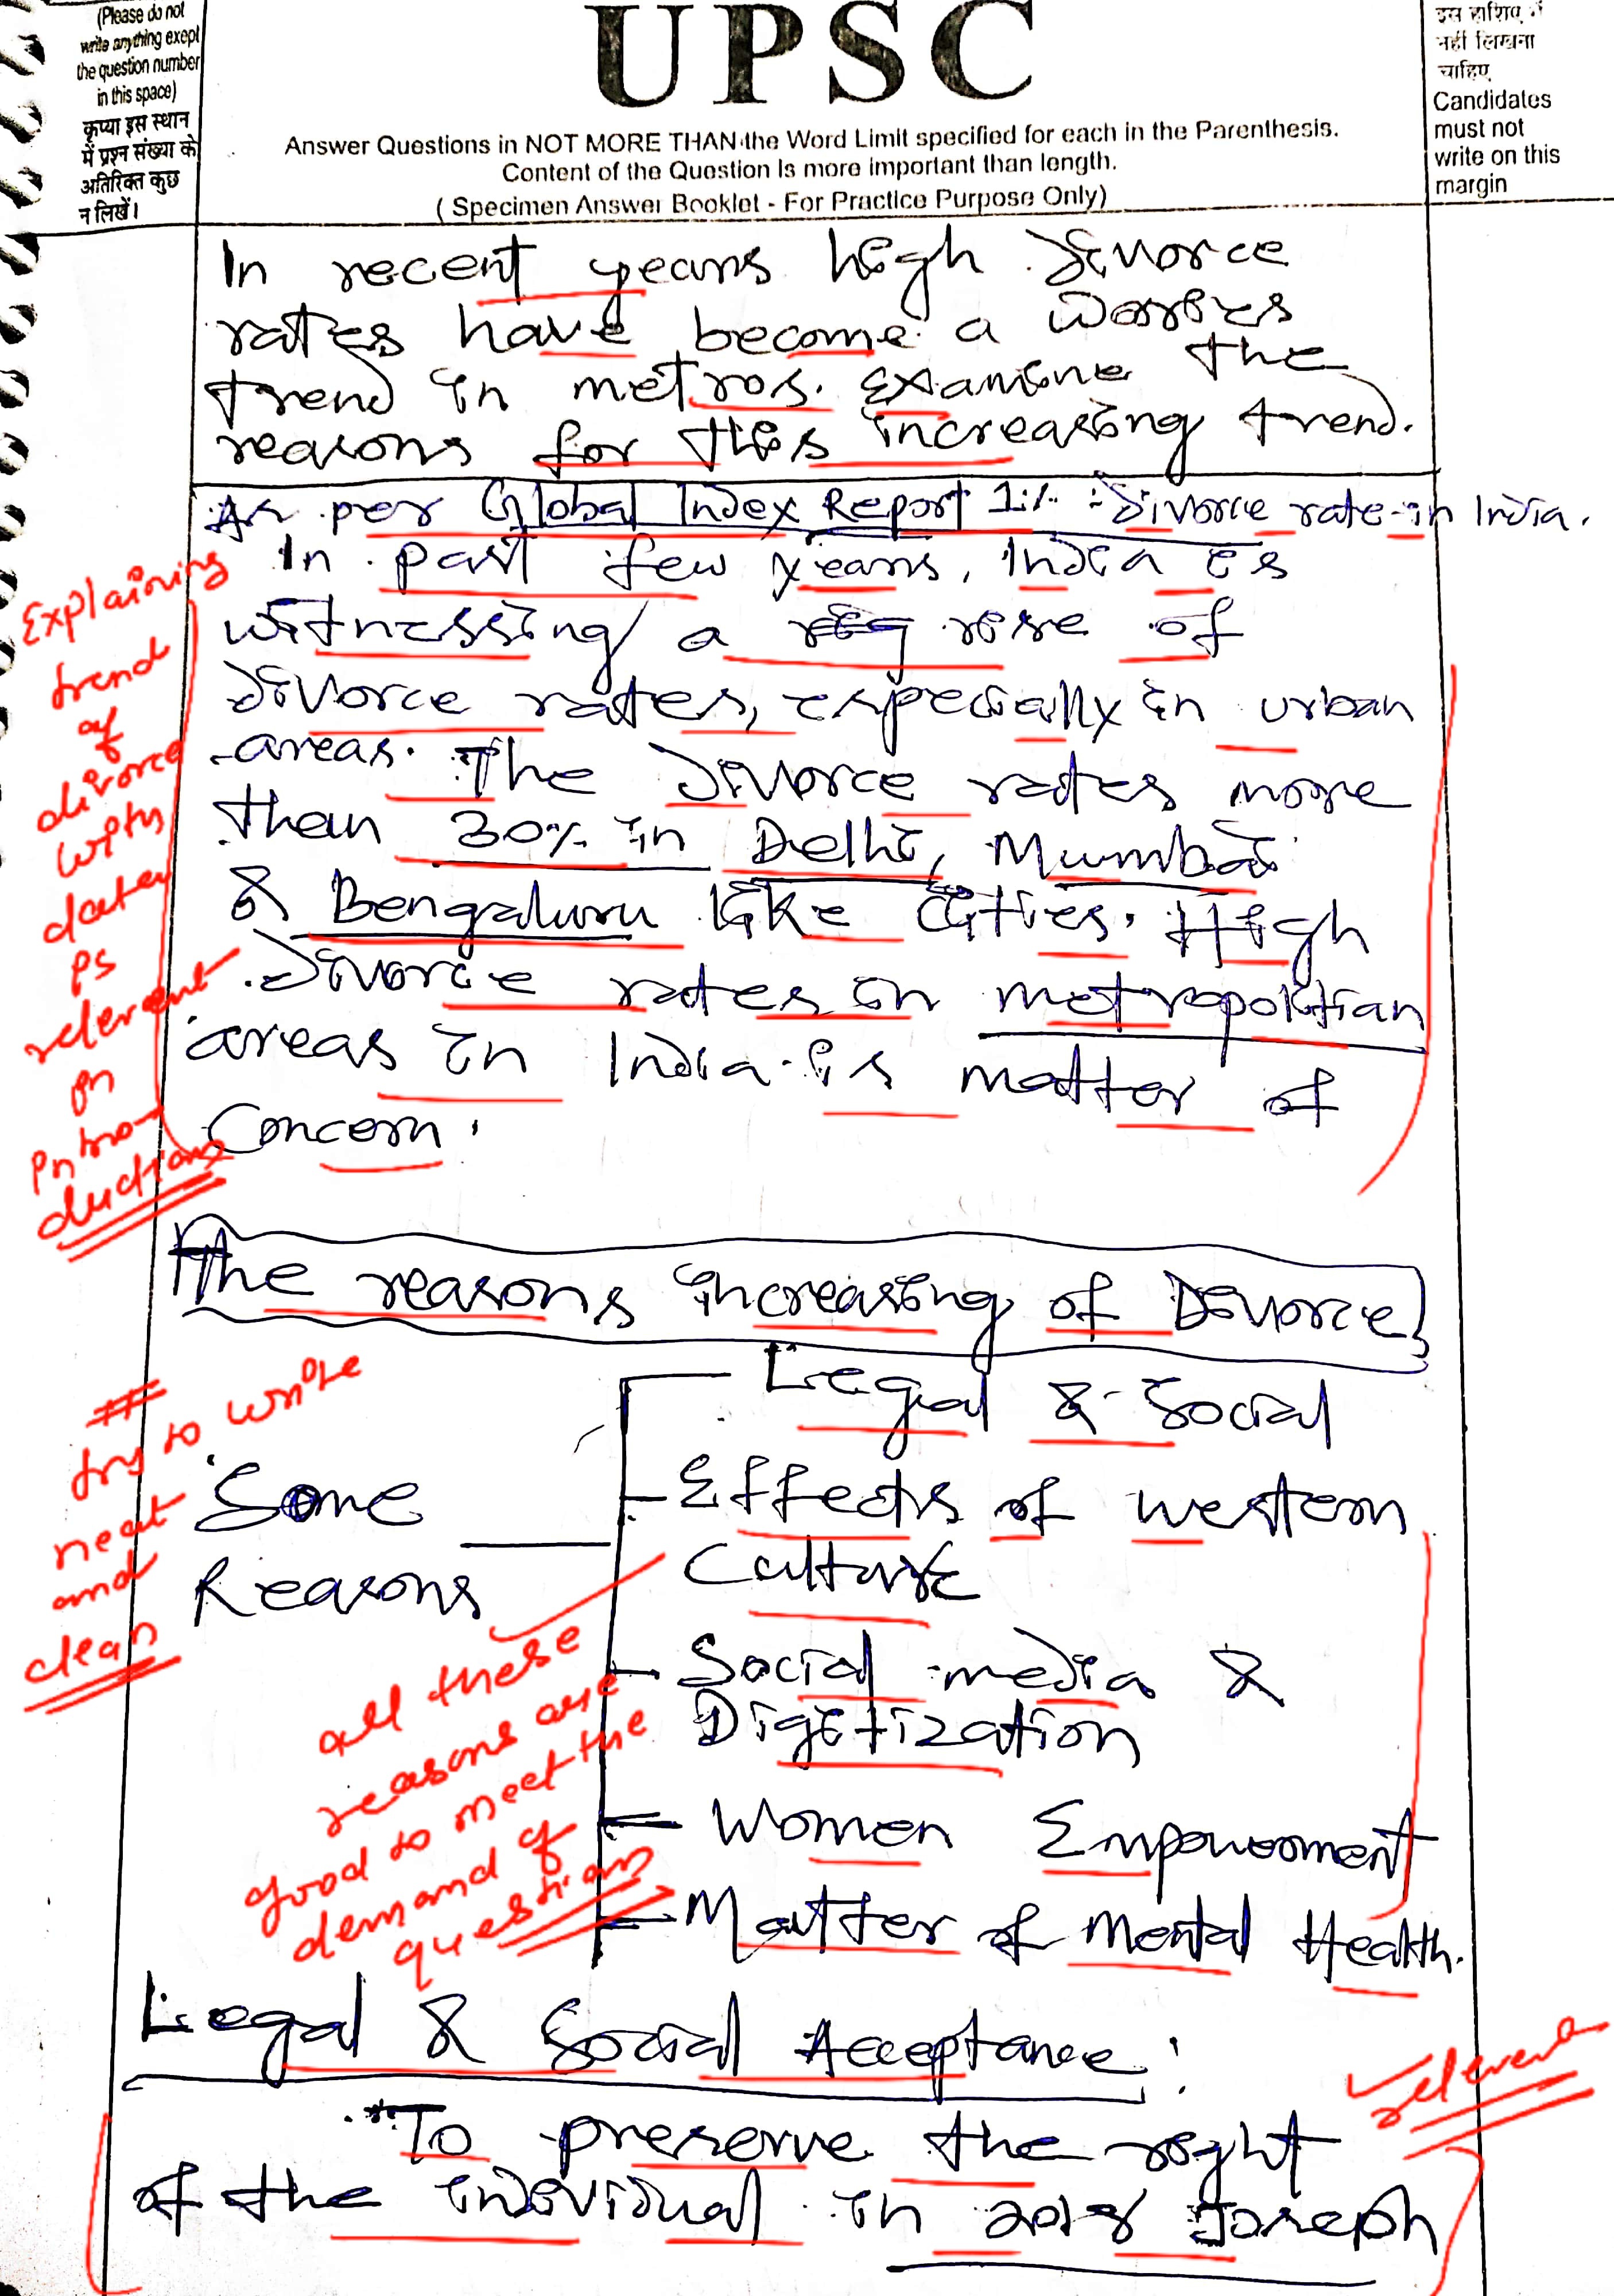 (Please do not
write anything exept
the question number
in this space)
कृप्या इस स्थान
में प्रश्न संख्या के
अतिरिक्त कुछ
न लिखें।
UPSC
Answer Questions in NOT MORE THAN the Word Limit specified for each in the Parenthesis.
Content of the Question Is more important than length.
( Specimen Answer Booklet - For Practice Purpose Only)
इस हाशिए में
नहीं लिखना
चाहिए
Candidates
must not
write on this
margin
In recent years high divorce
rates have become a
trend in metros. Examine the
reasons for this increasing trend.
As per Global Index Report 1% divorce rate in India.
In past few years, India is
witnessing a rise of
divorce rates, especially in urban
areas. The divorce rates more
than 30% in Delhi, Mumbai
& Bengaluru like cities. High
divorce rates in metropolitian
areas in India is matter of
concern.
Explaining
trend
of
divorce
with
data
is
relevent
in
intro-
duction
The reasons increasing of Divorce
Some
Reasons
Legal & Social
Effects of western
Culture
Social media &
Digitization
Women Empowerment
Matter of Mental Health.
#
try to write
neat
and
clean
all these
reasons are
good to meet the
demand of
question
Legal & Social Acceptance:
relevent
To preserve the right
of the individual in 2018 Joseph